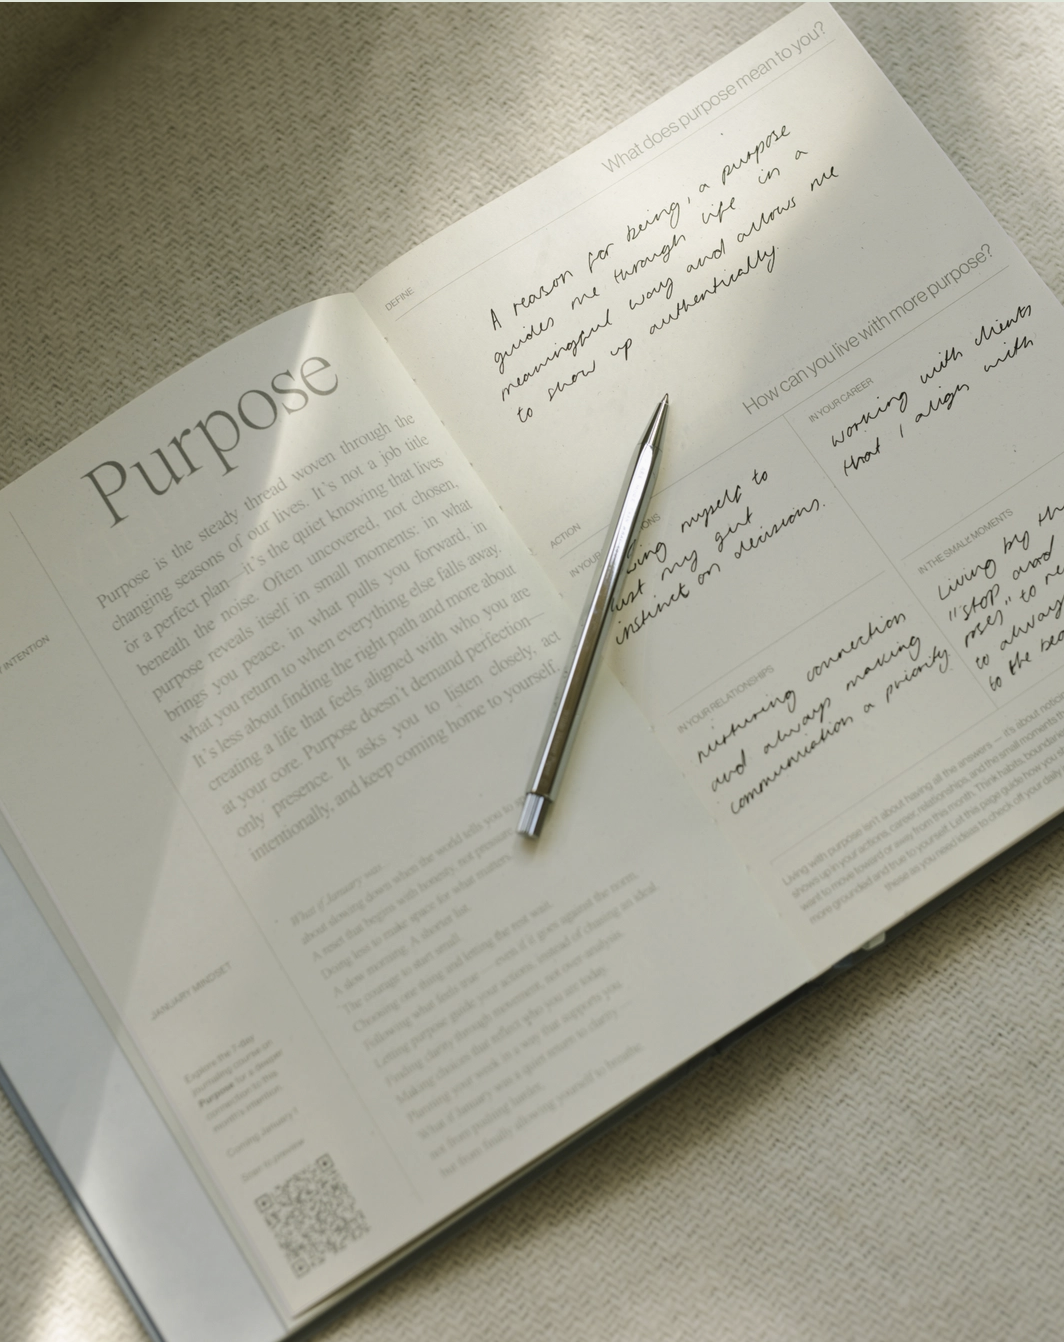 Purpose
Purpose is the steady thread woven through the
changing seasons of our lives. It's not a job title
or a perfect plan—it's the quiet knowing that lives
beneath the noise. Often uncovered, not chosen,
purpose reveals itself in small moments: in what
brings you peace, in what pulls you forward, in
what you return to when everything else falls away.
It's less about finding the right path and more about
creating a life that feels aligned with who you are
at your core. Purpose doesn't demand perfection—
only presence. It asks you to listen closely, act
intentionally, and keep coming home to yourself.
INTENTION
What if January was
about slowing down when the world tells you to
A reset that begins with honesty, not pressure
Doing less to make space for what matters
A slow morning. A shorter list.
The courage to start small.
Choosing one thing and letting the rest wait.
Following what feels true — even if it goes against the norm.
Letting purpose guide your actions, instead of chasing an ideal.
Finding clarity through movement, not over-analysis.
Making choices that reflect who you are today
Planning your week in a way that supports you
What if January was a quiet return to clarity
not from pushing harder,
but from finally allowing yourself to breathe.
JANUARY MINDSET
Explore the 7 day
Purpose for a deeper
connection to this
month's intention
Coming January 1
DEFINE
What does purpose mean to you?
A reason for being, a purpose
guides me through life in a
meaningful way and allows me
to show up authentically
ACTION
How can you live with more purpose?
IN YOUR
myself to
my gut
instinct on decisions.
IN YOUR CAREER
working with clients
that I align with
IN YOUR RELATIONSHIPS
nurturing connection
and always making
communication a priority
IN THE SMALL MOMENTS
Living by
"stop and
roses" to
to always
to the
Living with purpose isn't about having all the answers — it's about
shows up in your actions, career, relationships, and the small moments
want to move toward or away from this month. Think habits,
more grounded and true to yourself. Let this page guide how you
these as you need ideas to check off your